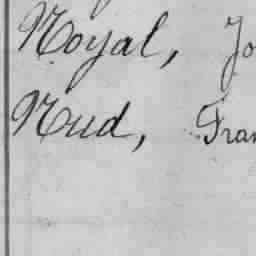 Royal, Jo
Rud, Fran